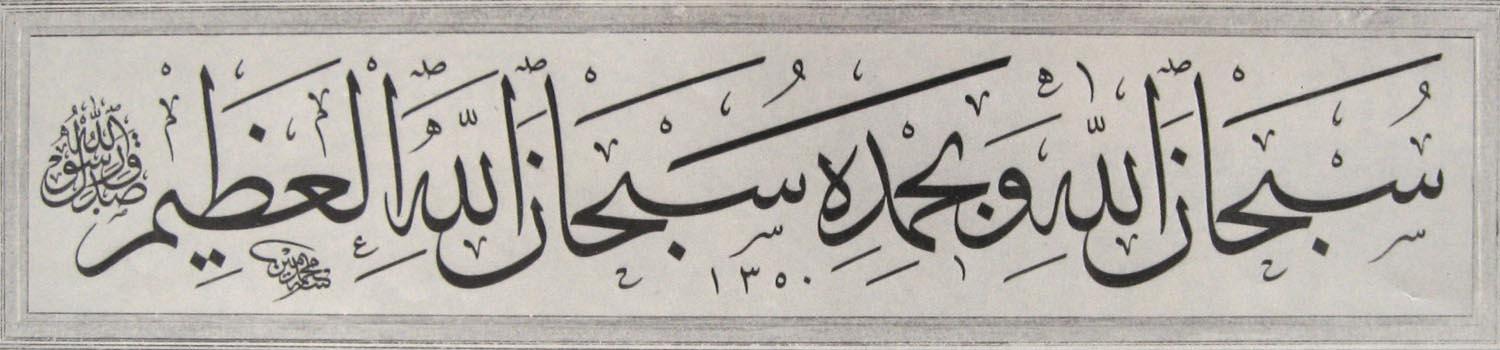 سُبْحَانَ اللّٰهِ وَبِحَمْدِهِ سُبْحَانَ اللّٰهِ الْعَظِيمِ
صدق رسول الله
١٣٥٠